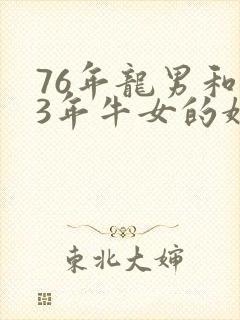 76年龍男和
3年牛女的
東北大嬸